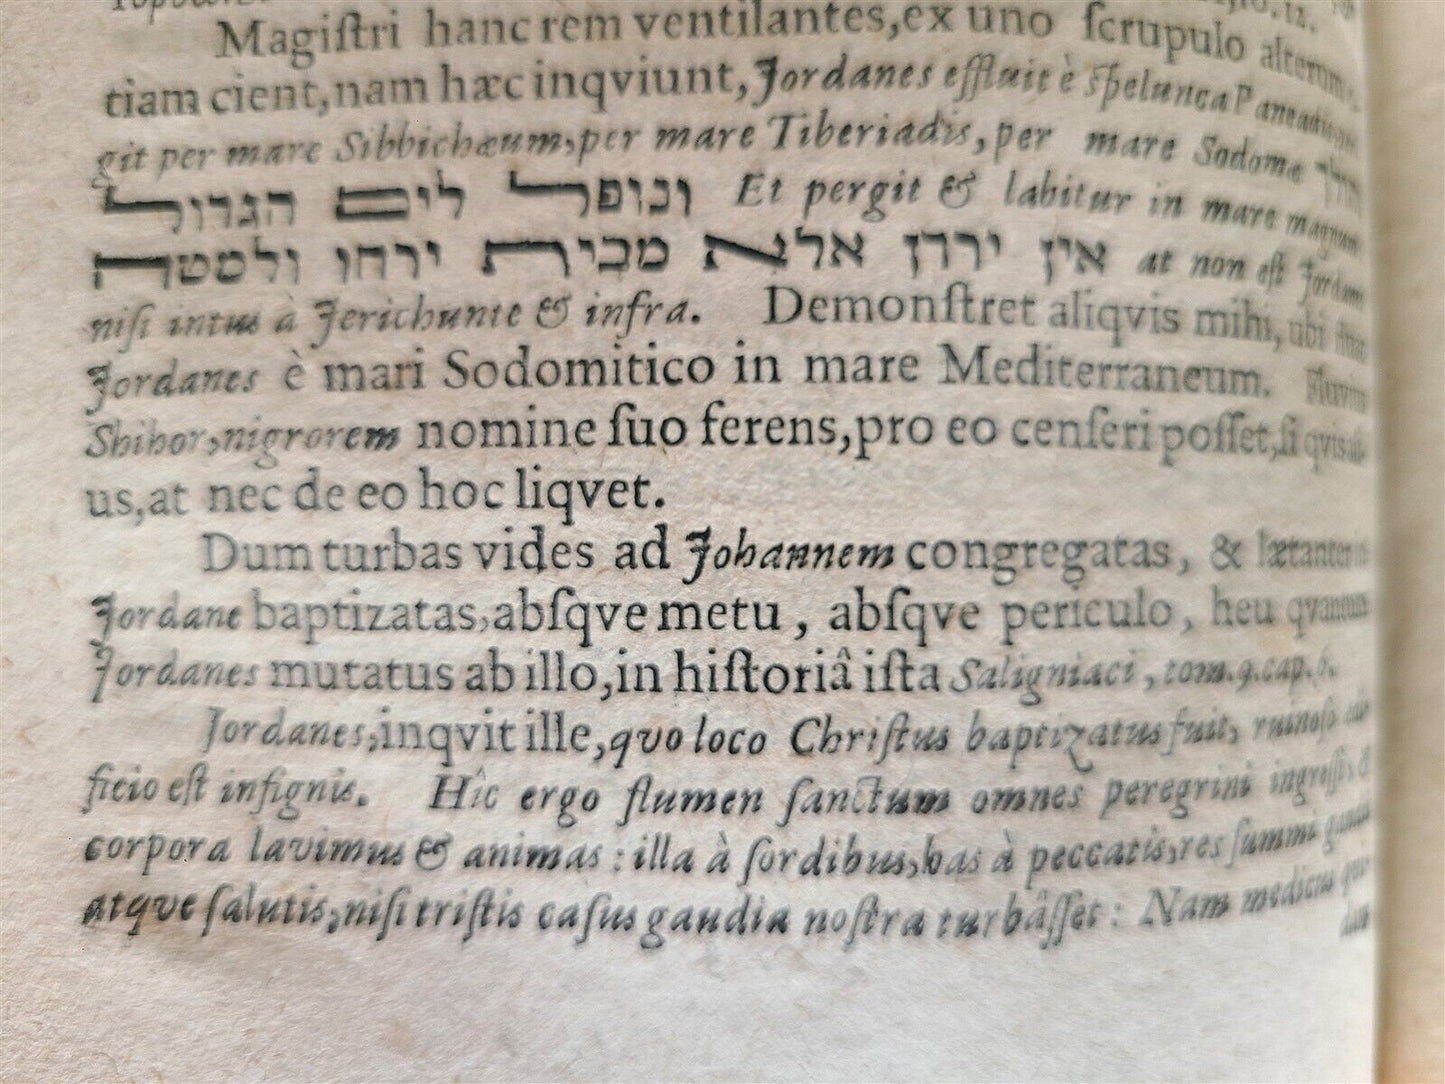 Magiſtri hanc rem ventilantes, ex uno ſcrupulo alterum
tiam cient, nam hæc inqviunt, Jordanes effluit è ſpelunca Paneadis,
git per mare Sibbichæum, per mare Tiberiadis, per mare Sodomæ
ונופל לים הגדול Et pergit & labitur in mare magnum.
אין ירדן אלא מבית ירחו ולמטה at non eſt Jordanes
niſi intus à Jerichunte & infra. Demonſtret aliqvis mihi, ubi
Jordanes è mari Sodomitico in mare Mediterraneum. Fluvius
Shihor, nigrorem nomine ſuo ferens, pro eo cenſeri poſſet, ſi qvis
us, at nec de eo hoc liqvet.
Dum turbas vides ad Johannem congregatas, & lætanter
Jordane baptizatas, abſqve metu, abſqve periculo, heu qvantum
Jordanes mutatus ab illo, in hiſtoriâ iſta Saligniaci, tom. 9. cap. 6.
Jordanes, inqvit ille, qvo loco Chriſtus baptizatus fuit, ruinoſo
ficio eſt inſignis. Hîc ergo flumen ſanctum omnes peregrini ingreſſi,
corpora lavimus & animas: illa à ſordibus, has à peccatis, res ſummi gaudii
atqve ſalutis, niſi triſtis caſus gaudia noſtra turbâſſet: Nam medicus